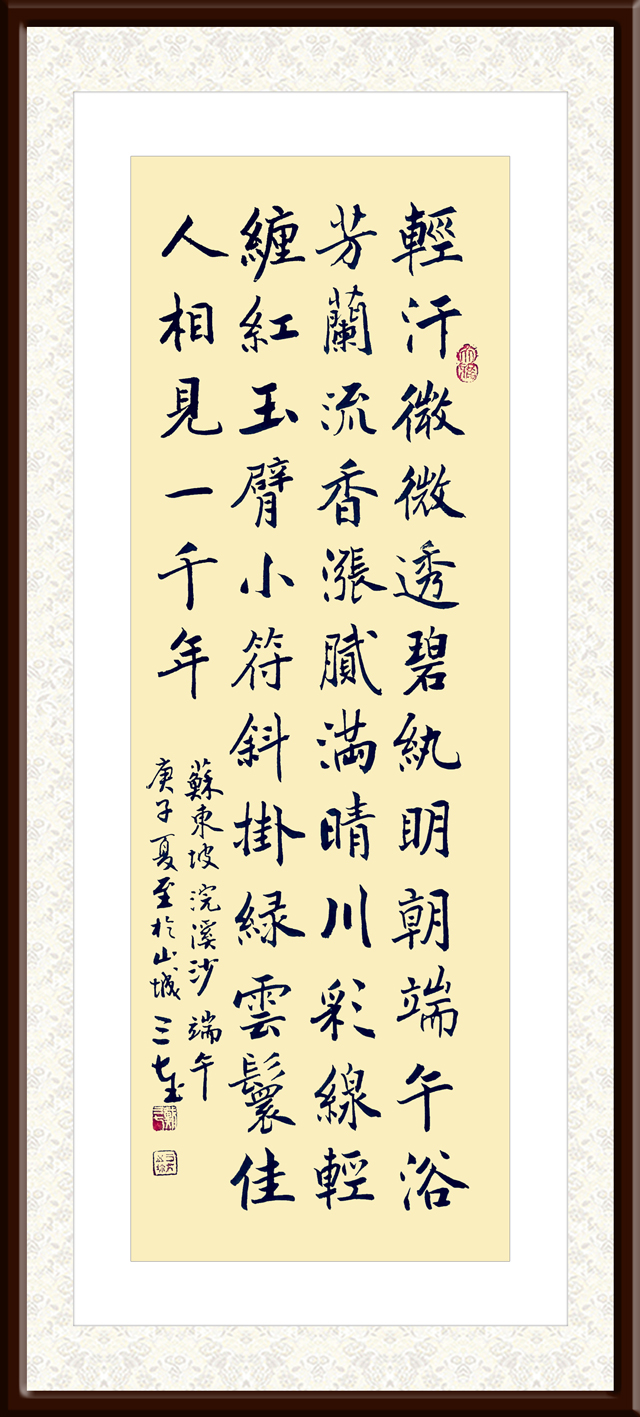 輕汗微微透碧紈明朝端午浴
芳蘭流香漲膩滿晴川彩線輕
纏紅玉臂小符斜掛緑雲鬟佳
人相見一千年
蘇東坡浣溪沙端午
庚子夏至於山城三七